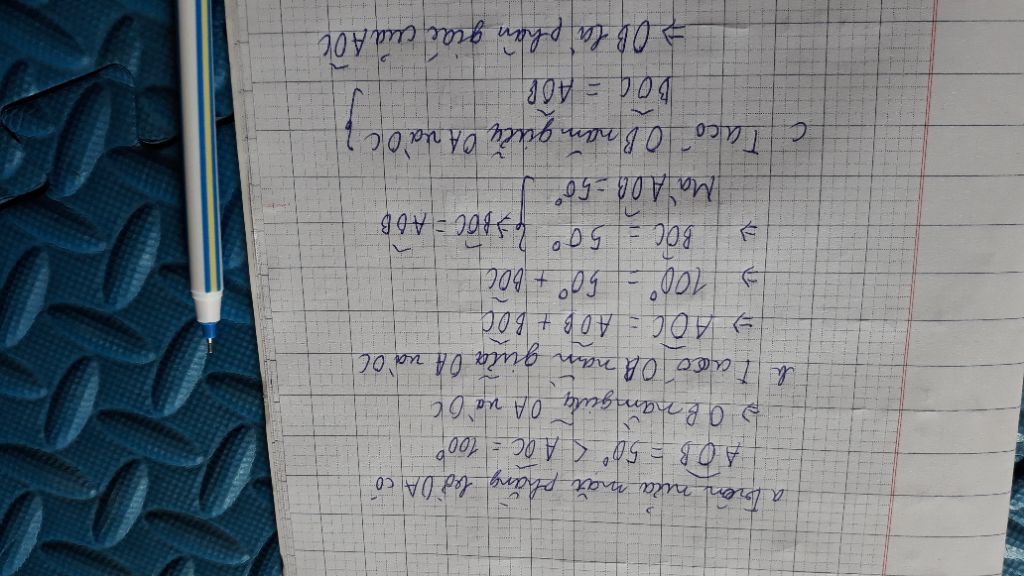 a trên nửa mặt phẳng bờ OA có
AÔB = 50° < AÔC = 100°
⇒ OB nằm giữa OA và OC
b Ta có OB nằm giữa OA và OC
⇒ AÔC = AÔB + BÔC
⇒ 100° = 50° + BÔC
⇒ BÔC = 50° } ⇒ BÔC = AÔB
Mà AÔB = 50°
c Ta có OB nằm giữa OA và OC }
BÔC = AÔB
⇒ OB là phân giác của AÔC